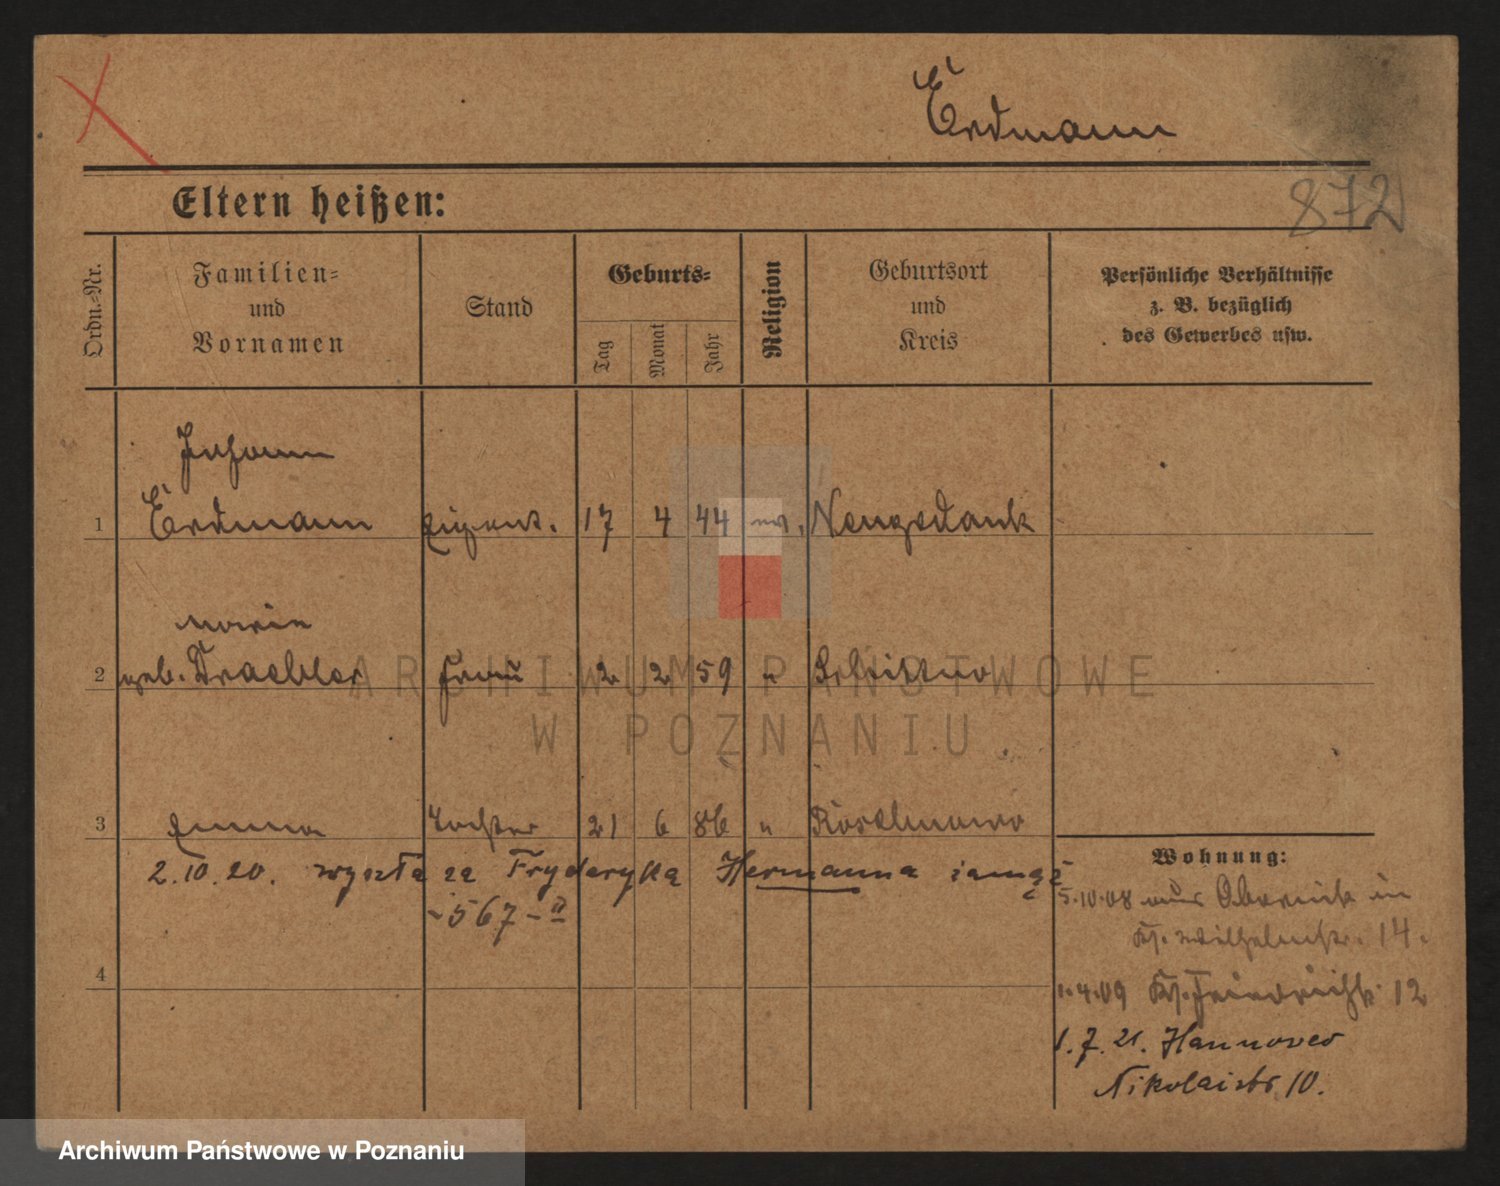 Erdmann
872
Eltern heißen:
Ordn.-Nr.
Familien-
und
Vornamen
Stand
Geburts-
Tag
Monat
Jahr
Religion
Geburtsort
und
Kreis
Persönliche Verhältnisse
z. B. bezüglich
des Gewerbes usw.
Johann
1 Erdmann Eigent. 17 4 44 ev. Neugedank
Marie
2 geb. Draebler Frau 2 2 59 "
3 Emma Tochter 21 6 86 "
2.10.20. wyszła za Fryderyka Hermanna zamąż
-567-a
4
Wohnung:
5.10.08 aus Obornik in
Wilhelmstr. 14.
1.4.09 Friedrichstr. 12
1.7.21. Hannover
Nikolaistr. 10.
ARCHIWUM PAŃSTWOWE
W POZNANIU
Archiwum Państwowe w Poznaniu